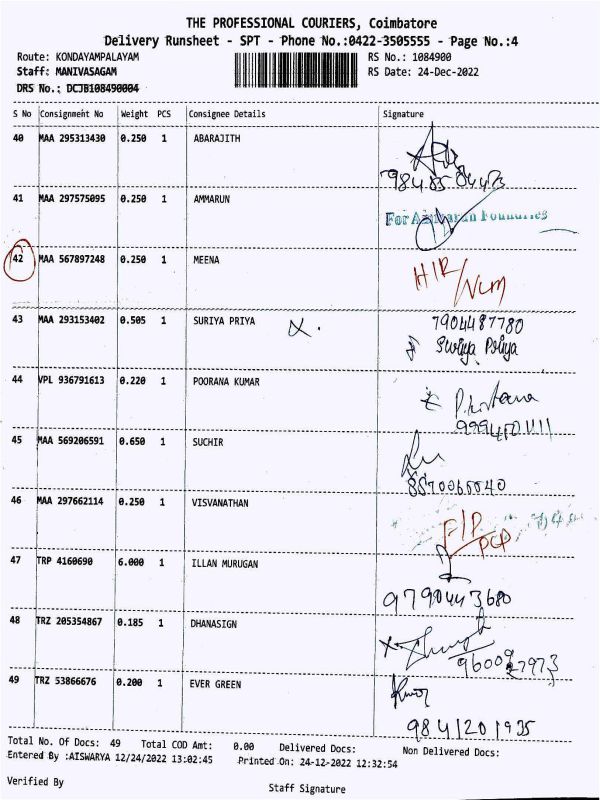 THE PROFESSIONAL COURIERS, Coimbatore
Delivery Runsheet - SPT - Phone No.:0422-3505555 - Page No.:4
Route: KONDAYAMPALAYAM RS No.: 1084900
Staff: MANIVASAGAM RS Date: 24-Dec-2022
DRS No.: DCJB108490004
S No Consignment No Weight PCS Consignee Details Signature
40 MAA 295313430 0.250 1 ABARAJITH
41 MAA 297575095 0.250 1 AMMARUN
For Ammarun Foundries
42 MAA 567897248 0.250 1 MEENA
H/R/NCM
43 MAA 293153402 0.505 1 SURIYA PRIYA X. 7904487780
Suriya Priya
44 VPL 936791613 0.220 1 POORANA KUMAR
45 MAA 569206591 0.650 1 SUCHIR
46 MAA 297662114 0.250 1 VISVANATHAN
47 TRP 4160690 6.000 1 ILLAN MURUGAN
9790443680
48 TRZ 205354867 0.185 1 DHANASIGN
49 TRZ 53866676 0.200 1 EVER GREEN
9841201935
Total No. Of Docs: 49 Total COD Amt: 0.00 Delivered Docs: Non Delivered Docs:
Entered By :AISWARYA 12/24/2022 13:02:45 Printed On: 24-12-2022 12:32:54
Verified By Staff Signature